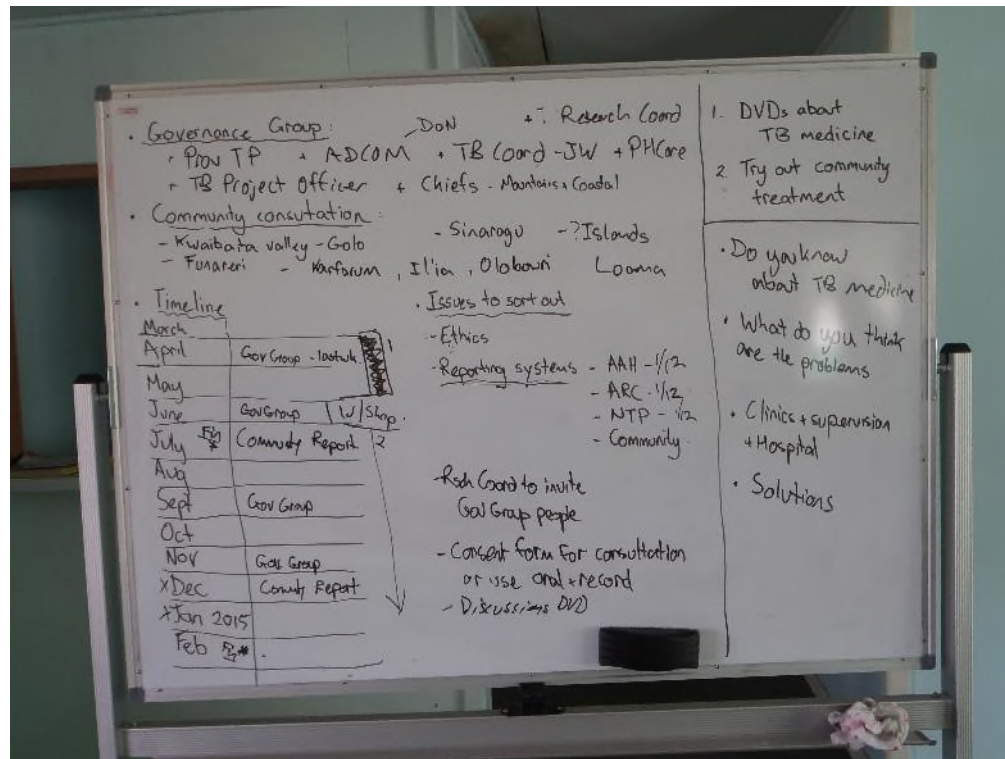 · Governance Group: - DON +? Research Coord
· Prov TP + ADCOM + TB Coord - JW + PHCare
+ TB Project Officer + Chiefs - Mountains + Coastal
· Community consutation:
- Kwaibaita valley - Golo - Sinaragu - ? Islands
- Funareri - Karfarum, Ilia, Olobauri Loama
· Timeline
March
April Gov Group - last wk
May
June Gov Group W/Shop.
July Community Report 2
Aug
Sept Gov Group
Oct
Nov Gov Group
xDec Comuty Report
xJan 2015
Feb
· Issues to sort out
- Ethics
- Reporting systems - AAH - 1/12
- ARC - 1/12
- NTP - 1/12
- Community.
- Rsch Coord to invite
Gov Group people
- Consent form for consultation
or use oral + record
- Discussions DVD
1. DVDs about
TB medicine
2. Try out community
treatment
· Do you know
about TB medicine
· What do you think
are the problems
· Clinics + supervision
+ Hospital
· Solutions